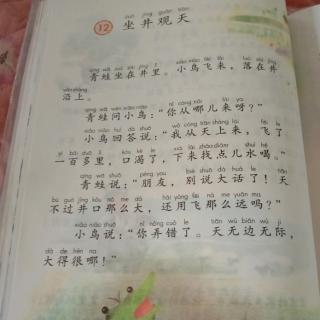 zuò jǐng guān tiān
12 坐井观天
qīng wā zuò zài jǐng lǐ xiǎo niǎo fēi lái luò zài jǐng
青蛙坐在井里。小鸟飞来，落在井
yán shàng
沿上。
qīng wā wèn xiǎo niǎo nǐ cóng nǎr lái ya
青蛙问小鸟：“你从哪儿来呀？”
xiǎo niǎo huí dá shuō wǒ cóng tiān shàng lái fēi le
小鸟回答说：“我从天上来，飞了
yì bǎi duō lǐ kǒu kě le xià lái zhǎo diǎnr shuǐ hē
一百多里，口渴了，下来找点儿水喝。”
qīng wā shuō péng yǒu bié shuō dà huà le tiān
青蛙说：“朋友，别说大话了！天
bú guò jǐng kǒu nà me dà hái yòng fēi nà me yuǎn ma
不过井口那么大，还用飞那么远吗？”
xiǎo niǎo shuō nǐ nòng cuò le tiān wú biān wú jì
小鸟说：“你弄错了。天无边无际，
dà de hěn na
大得很哪！”